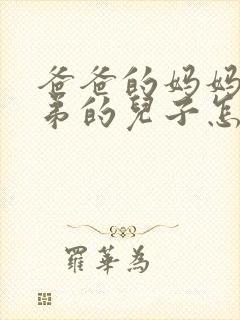 爸爸的妈妈
弟的兒子怎
羅華為